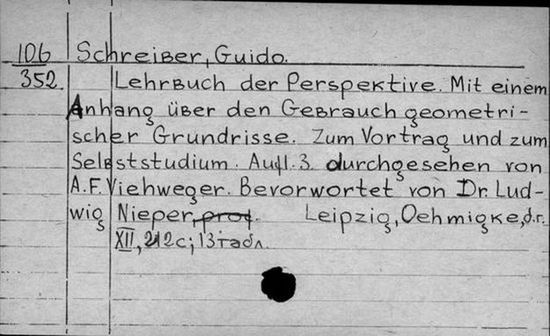 106 Schreiber, Guido.
352. Lehrbuch der Perspektive. Mit einem
Anhang über den Gebrauch geometri-
scher Grundrisse. Zum Vortrag und zum
Selbststudium. Aufl. 3. durchgesehen von
A.F. Viehweger. Bevorwortet von Dr. Lud-
wig Nieper, prof. Leipzig, Oehmigke, d.r.
XII, 212 с; 13 табл.